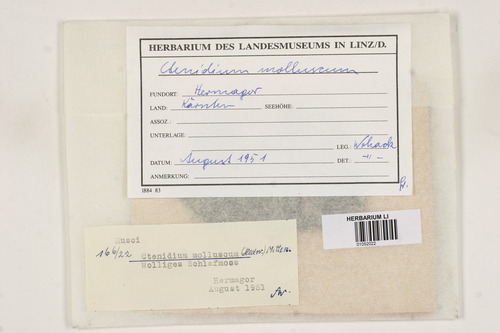 HERBARIUM DES LANDESMUSEUMS IN LINZ/D.
Ctenidium molluscum
FUNDORT: Hermagor
LAND: Kärnten SEEHÖHE:
ASSOZ.:
UNTERLAGE:
LEG.:
DATUM: August 1951 DET.: -"-
ANMERKUNG:
I884 83
HERBARIUM LI
01052022
Musci
166/22 Ctenidium molluscum (Hedw.) Mitten.
Wolliges Schlafmoos
Hermagor
August 1951